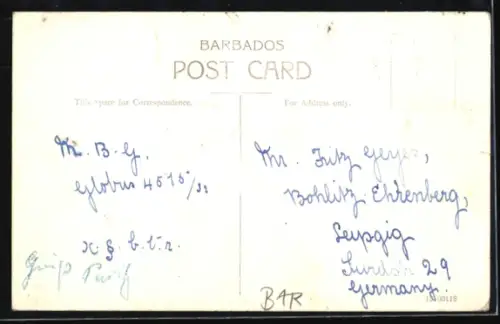 BARBADOS
POST CARD
This space for Correspondence.
For Address only.
M. B. G.
Globus 4515/33
Mr. Fritz Geyer,
Bohlitz Ehrenberg,
Leipzig
29
Germany.
B4R